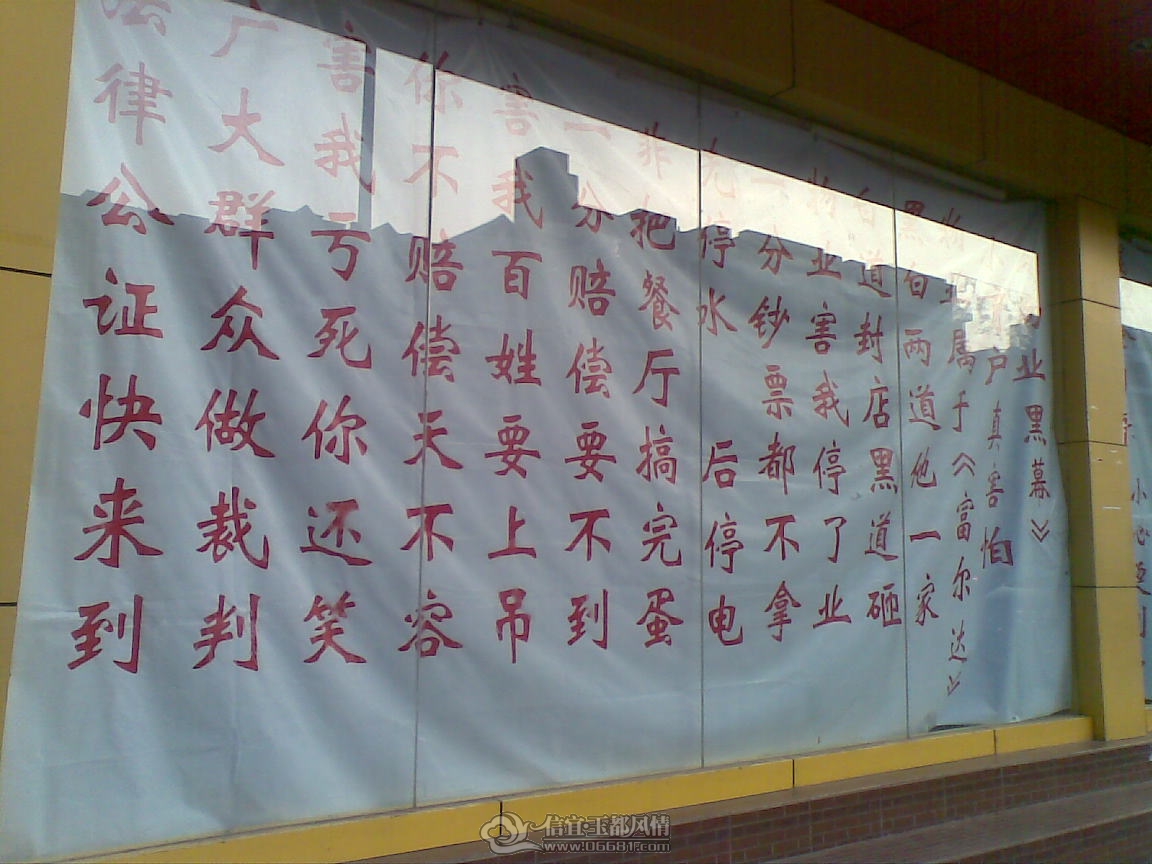 业黑幕》
户真害怕
物业属于《富尔达》
黑白两道他一家
白道封店黑道砸
物业害我停了业
一分钞票都不拿
先停水 后停电
非把餐厅搞完蛋
一分赔偿要不到
害我百姓要上吊
你不赔偿天不容
害我亏死你还笑
广大群众做裁判
法律公证快来到
小心
信宜·玉都风情
www.06681.com